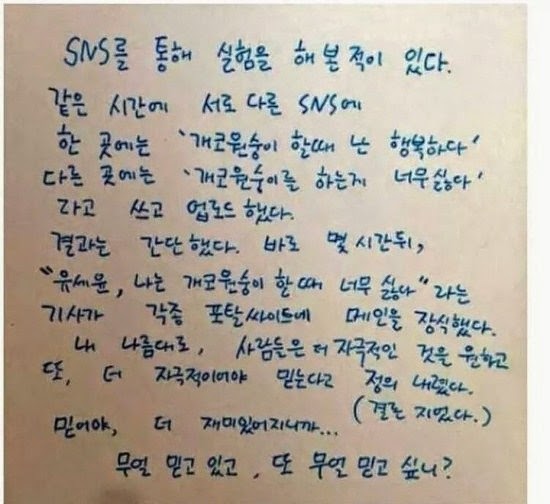 SNS를 통해 실험을 해 본 적이 있다.
같은 시간에 서로 다른 SNS에
한 곳에는 '개코원숭이 할때 난 행복하다'
다른 곳에는 '개코원숭이를 하는게 너무 싫다'
라고 쓰고 업로드 했다.
결과는 간단했다. 바로 몇 시간 뒤,
"유세윤, 나는 개코원숭이 할 때 너무 싫다"라는
기사가 각종 포탈싸이트에 메인을 장식했다.
내 나름대로, 사람들은 더 자극적인 것을 원하고
또, 더 자극적이어야 믿는다고 정의 내렸다.
(결론 지었다.)
믿어야, 더 재미있어지니까...
무얼 믿고 있고, 또 무얼 믿고 싶니?